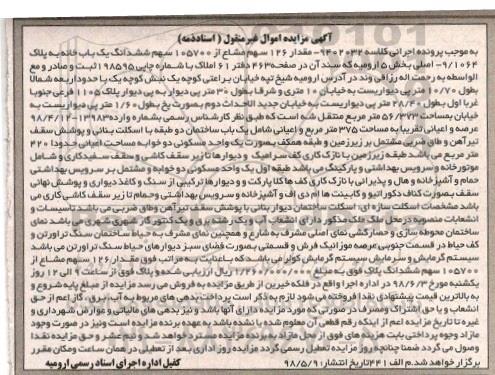 آگهی مزایده اموال غیرمنقول (اسناد ذمه)
به موجب پرونده اجرائی کلاسه ۹۴۰۲۰۳۲- مقدار ۱۲۶ سهم مشاع از ۱۰۵۷۰۰ سهم ششدانگ یک باب خانه به پلاک
۹/۱۰۶۴- اصلی بخش ۵ ارومیه که سند آن در صفحه ۴۶۳ دفتر ۶۱ املاک با شماره چاپی ۱۹۸۵۹۵ ثبت و صادر و مع
الواسطه به رحمت اله رزاقی وند در آدرس ارومیه شیخ تپه خیابان براعتی کوچه یک نبش کوچه یک با حدود اربعه شمالا
بطول ۱۰/۷۰ متر پی دیواریست به خیابان ۱۰ متری و شرقا بطول ۳۰ متر پی دیوار به پی دیوار پلاک ۱۱۰۵ فرعی جنوبا
غربا اول بطول ۲۸/۴۰ متر پی دیواریست به خیابان جدید الاحداث دوم بصورت پخ بطول ۱/۶۰ متر پی دیواریست به
خیابان بمساحت ۵۶/۳۷۳ متر مربع منتقل شده است که طبق نظر کارشناس رسمی بشماره وارده ۱۳۹۸۳-۹۸/۴/۱۲
عرصه و اعیانی تقریبا به مساحت ۳۷۵ متر مربع و اعیانی شامل یک باب ساختمان دو طبقه با اسکلت بنائی و پوشش سقف
تیرآهن و طاق ضربی مشتمل بر زیرزمین و طبقه همکف بصورت یک واحد مسکونی دو خوابه مساحت اعیانی حدودا ۴۲۰
متر مربع می باشد طبقه زیرزمین با نازک کاری کف سرامیک و دیوارها تا زیر سقف کاشی و سقف سفیدکاری و شامل
موتورخانه و سرویس بهداشتی و پارکینگ می باشد طبقه اول یک واحد مسکونی دو خوابه و مشتمل بر سرویس بهداشتی
حمام و آشپزخانه و هال و پذیرائی با نازک کاری کف ها کلا پارکت و دیوارها ترکیبی از سنگ و کاغذ دیواری و پوشش نهائی
سقف بصورت کناف دکوراتیو و کابینت ها ام دی اف و آشپزخانه و سرویس بهداشتی و حمام تا زیر سقف کاشی کاری می
باشد مشخصات اسکلت سازه ای: اسکلت ساختمان دیوار بنائی با پوشش سقف تیرآهن و طاق ضربی می باشد تاسیسات و
انشعابات منصوبه در محل ملک مذکور دارای انشعاب آب و یک رشته برق و یک کنتور گاز شهری شهری می باشد نمای
ساختمان محوطه سازی و حصارکشی نمای اصلی مشرف به شارع و همچنین نمای مشرف به حیاط ساختمان سنگ تراورتن و
کف حیاط در قسمت جنوبی عرصه موزائیک فرش و قسمتی بصورت فضای سبز دیوارهای حیاط سنگ تراورتن می باشد
سیستم گرمایش و سرمایش سیستم گرمایش کولر می باشد که با عنایت به مراتب فوق مقدار ۱۲۶ سهم مشاع از
۱۰۵۷۰۰ سهم ششدانگ پلاک فوق به مبلغ ۱/۲۶۰/۰۰۰/۰۰۰ ریال ارزیابی شده و پلاک فوق از ساعت ۹ الی ۱۲ روز
یکشنبه مورخ ۹۸/۶/۳ در اداره اجرا واقع در فلکه خیرین از طریق مزایده به فروش می رسد مزایده از مبلغ پایه شروع و
به بالاترین قیمت پیشنهادی نقدا فروخته می شود لازم به ذکر است پرداخت بدهی های مربوط به آب، برق، گاز اعم از حق
انشعاب و یا حق اشتراک و مصرف در صورتی که مورد مزایده دارای آنها باشد و نیز بدهی های مالیاتی و عوارض شهرداری و
غیره تا تاریخ مزایده اعم از اینکه رقم قطعی آن معلوم شده یا نشده باشد به عهده برنده مزایده است و نیز در صورت وجود
مازاد وجوه پرداختی بابت هزینه های فوق از محل مازاد به برنده مزایده مسترد خواهد شد و نیم عشر و حق مزایده نقدا
وصول می گردد ضمنا چنانچه روز مزایده تعطیل رسمی گردد مزایده روز اداری بعد از تعطیلی در همان ساعت و مکان مقرر
برگزار خواهد شد. م الف ۴۴۱ تاریخ انتشار: ۹۸/۵/۹ کفیل اداره اجرای اسناد رسمی ارومیه